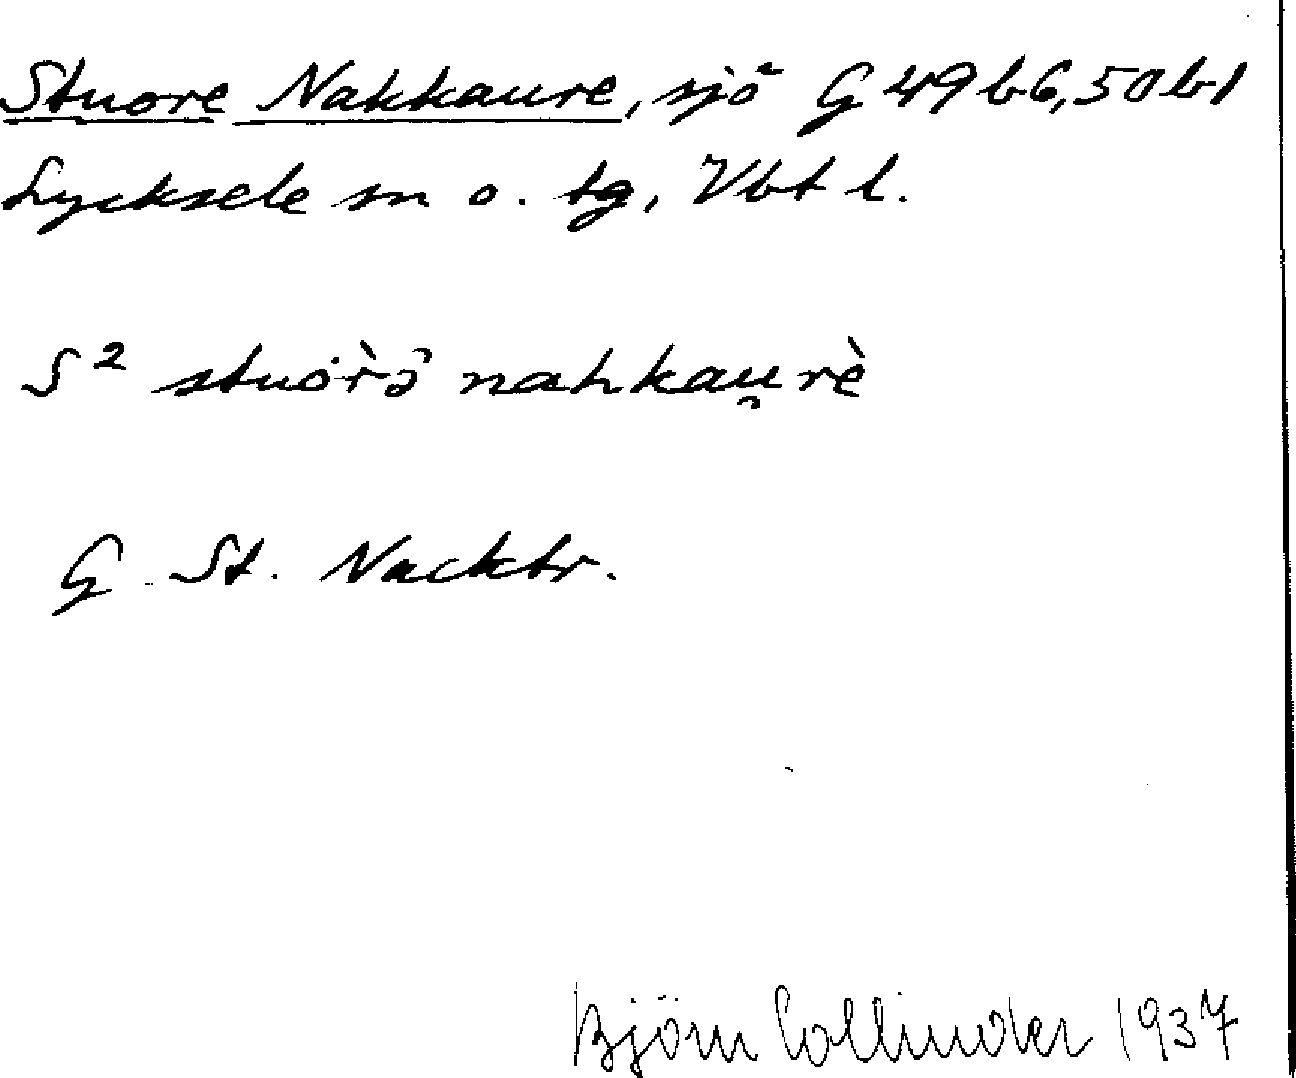 Stuore Nakkaure, sjö G 49 b6, 50 b1
Lycksele sn o. tg, Vbt l.
S² stuȯr̀ə̑ nahkau̯rè
G St. Nacktr.
Björn Collinder 1937